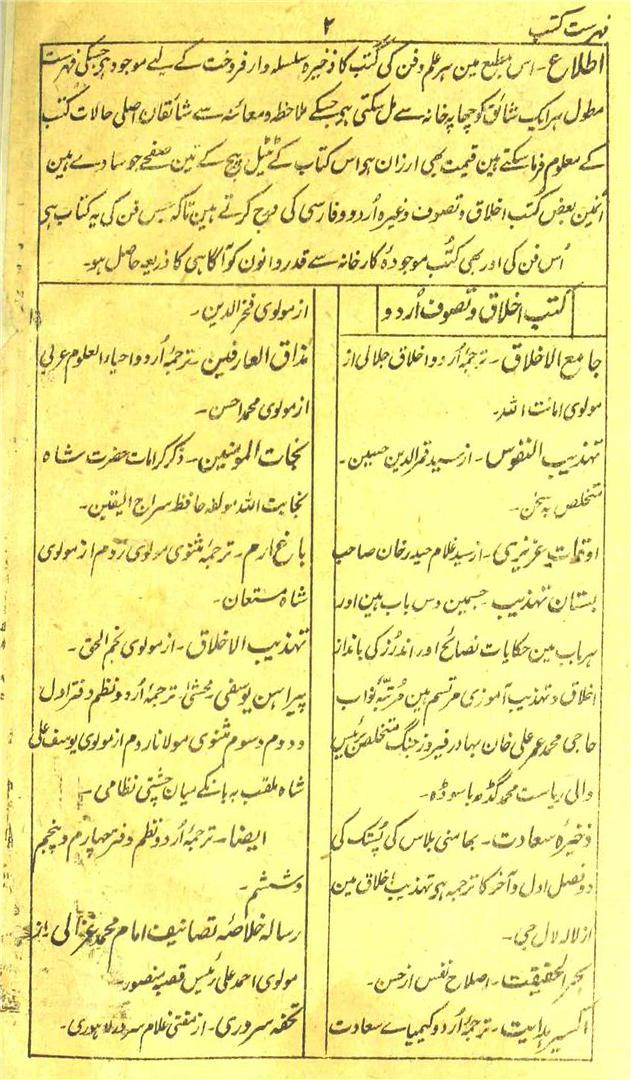 فہرست کتب
۲
اطلاع۔ اس مطبع مین ہر علم وفن کی کتب کا ذخیرہ سلسلہ وار فروخت کے لیے موجود ہی جسکی فہرست
مطول ہر ایک شائق کو چھاپہ خانہ سے مل سکتی ہی جسکے ملاحظہ و معائنہ سے شائقان اصلی حالات کتب
کے معلوم فرما سکتے ہین قیمت بھی ارزان ہی اس کتاب کے ٹیٹل پیج کے تین صفحے جو سادے ہین
اُنمین بعض کتب اخلاق و تصوف وغیرہ اُردو و فارسی کی درج کرتے ہین تاکہ جس فن کی یہ کتاب ہی
اُس فن کی اور بھی کتب موجودہ کارخانہ سے قدردانون کو آگاہی کا ذریعہ حاصل ہو۔
کتب اخلاق و تصوف اُردو
جامع الاخلاق۔ ترجمۂ اُردو اخلاق جلالی از
مولوی امانت اللہ۔
تہذیب النفوس۔ از سید قمر الدین حسین۔
متخلص بہ سخن۔
اوقات عزیزی۔ از سید غلام حیدر خان صاحب
بستان تہذیب۔ جسمین دس باب ہین اور
ہر باب مین حکایات نصائح اور اندرز کی بانداز
اخلاق و تہذیب آموزی مرتسم ہین مُرتبہ نواب
حاجی محمد عمر علی خان بہادر فیروز جنگ متخلص رئیس
والی ریاست محمد گڈھ باسودہ۔
ذخیرۂ سعادت۔ بھامنی بلاس کی پُستک کی
دو فصل اول و آخر کا ترجمہ ہی تہذیب اخلاق مین
از لالہ لال جی۔
بحر الحقیقت۔ اصلاح نفس از حسن۔
اکسیر ہدایت۔ ترجمۂ اُردو کیمیاے سعادت
از مولوی فخر الدین۔
مذاق العارفین۔ ترجمۂ اُردو احیاء العلوم عربی
از مولوی محمد احسن۔
نجات المومنین۔ ذکر کرامات حضرت شاہ
نجابت اللہ مولفہ حافظ سراج الیقین۔
باغ ارم۔ ترجمۂ مثنوی مولوی روم از مولوی
شاہ مستعان۔
تہذیب الاخلاق۔ از مولوی نجم الحق۔
پیراہن یوسفی محشیٰ۔ ترجمۂ اُردو نظم دفتر اول
و دوم و سوم مثنوی مولانا روم از مولوی یوسف علی
شاہ ملقب بہ بانکے میان چشتی نظامی۔
ایضا۔ ترجمۂ اُردو نظم دفتر چہارم و پنجم
و ششم۔
رسالہ خلاصۂ تصانیف امام محمد غزالی از
مولوی احمد علی رئیس قصبہ منصور۔
تحفہ سروری۔ از مفتی غلام سرور لاہوری۔